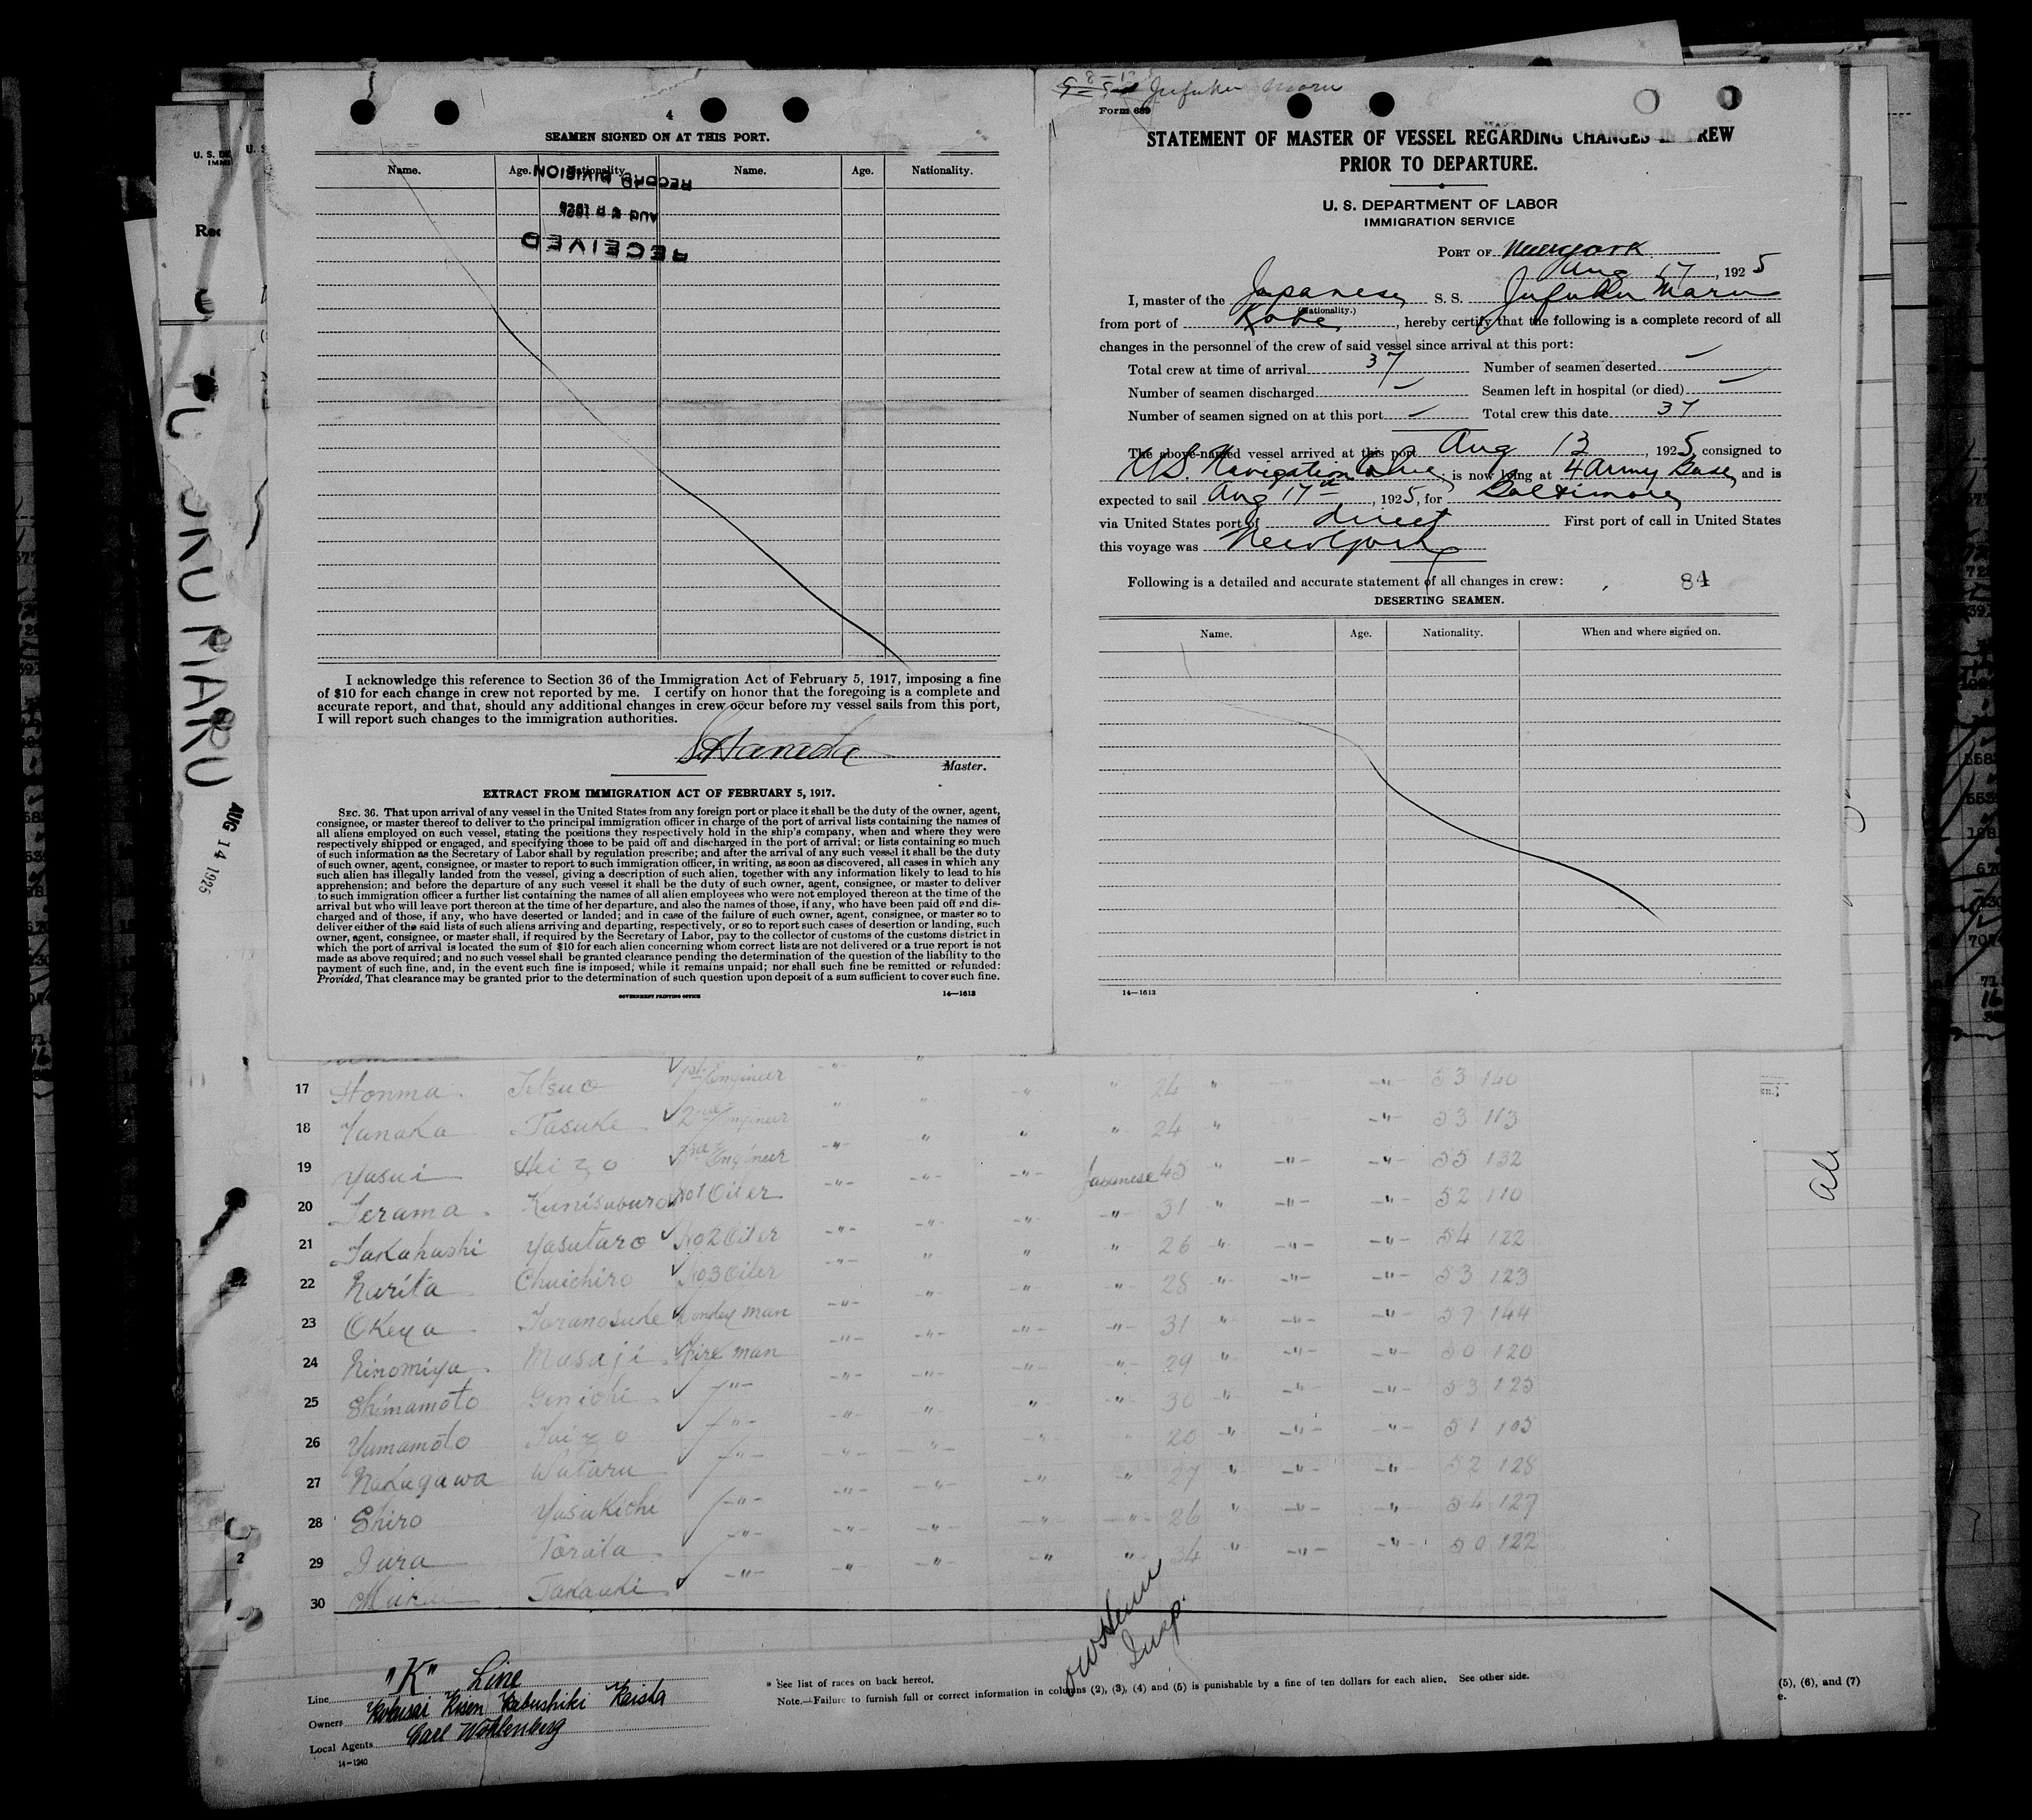 4
SEAMEN SIGNED ON AT THIS PORT.
Name. Age. Nationality. Name. Age. Nationality.
RECORD DIVISION
RECEIVED
I acknowledge this reference to Section 36 of the Immigration Act of February 5, 1917, imposing a fine
of $10 for each change in crew not reported by me. I certify on honor that the foregoing is a complete and
accurate report, and that, should any additional changes in crew occur before my vessel sails from this port,
I will report such changes to the immigration authorities.
Master.
EXTRACT FROM IMMIGRATION ACT OF FEBRUARY 5, 1917.
SEC. 36. That upon arrival of any vessel in the United States from any foreign port or place it shall be the duty of the owner, agent,
consignee, or master thereof to deliver to the principal immigration officer in charge of the port of arrival lists containing the names of
all aliens employed on such vessel, stating the positions they respectively hold in the ship's company, when and where they were
respectively shipped or engaged, and specifying those to be paid off and discharged in the port of arrival; or lists containing so much
of such information as the Secretary of Labor shall by regulation prescribe; and after the arrival of any such vessel it shall be the duty
of such owner, agent, consignee, or master to report to such immigration officer, in writing, as soon as discovered, all cases in which any
such alien has illegally landed from the vessel, giving a description of such alien, together with any information likely to lead to his
apprehension; and before the departure of any such vessel it shall be the duty of such owner, agent, consignee, or master to deliver
to such immigration officer a further list containing the names of all alien employees who were not employed thereon at the time of the
arrival but who will leave port thereon at the time of her departure, and also the names of those, if any, who have been paid off and dis-
charged and of those, if any, who have deserted or landed; and in case of the failure of such owner, agent, consignee, or master so to
deliver either of the said lists of such aliens arriving and departing, respectively, or so to report such cases of desertion or landing, such
owner, agent, consignee, or master shall, if required by the Secretary of Labor, pay to the collector of customs of the customs district in
which the port of arrival is located the sum of $10 for each alien concerning whom correct lists are not delivered or a true report is not
made as above required; and no such vessel shall be granted clearance pending the determination of the question of the liability to the
payment of such fine, and, in the event such fine is imposed, while it remains unpaid; nor shall such fine be remitted or refunded:
Provided, That clearance may be granted prior to the determination of such question upon deposit of a sum sufficient to cover such fine.
GOVERNMENT PRINTING OFFICE 14—1613
Jufuku Maru
Form 689
STATEMENT OF MASTER OF VESSEL REGARDING CHANGES IN CREW
PRIOR TO DEPARTURE.
U. S. DEPARTMENT OF LABOR
IMMIGRATION SERVICE
PORT OF Newyork
Aug 17, 1925
I, master of the Japanese S. S. Jufuku Maru
(Nationality.)
from port of Kobe, hereby certify that the following is a complete record of all
changes in the personnel of the crew of said vessel since arrival at this port:
Total crew at time of arrival 37 Number of seamen deserted —
Number of seamen discharged — Seamen left in hospital (or died) —
Number of seamen signed on at this port — Total crew this date 37
The above-named vessel arrived at this port Aug 13, 1925, consigned to
U.S. Navigation; is now lying at 4 Army Base, and is
expected to sail Aug 17th, 1925, for Baltimore
via United States port of direct First port of call in United States
this voyage was Newyork
Following is a detailed and accurate statement of all changes in crew: 84
DESERTING SEAMEN.
Name. Age. Nationality. When and where signed on.
14—1613
AUG 14 1925
17 Honma Tetsuo 1st Engineer 24 53 140
18 Tanaka Tasuke 2nd Engineer 24 53 113
19 Yasui Heizo 3rd Engineer Japanese 45 55 132
20 Terama Kunisaburo No1 Oiler 31 52 110
21 Takahashi Yasutaro No2 Oiler 26 54 122
22 Narita Chuichiro No3 Oiler 28 53 123
23 Okeya Toranosuke Donkey man 31 57 144
24 Ninomiya Masaji Fire man 29 50 120
25 Shimamoto Genichi 30 53 125
26 Yamamoto Taizo 20 51 105
27 Nakagawa Wataru 27 52 128
28 Shiro Yasukichi 26 54 127
29 Torata 34 50 122
30 Takauki
Insp.
Line "K" Line
Owners Kokusai Kisen Kabushiki Kaisha
Local Agents Carl Wohlenberg
14—1240
* See list of races on back hereof.
Note.—Failure to furnish full or correct information in columns (2), (3), (4) and (5) is punishable by a fine of ten dollars for each alien. See other side.
(5), (6), and (7)